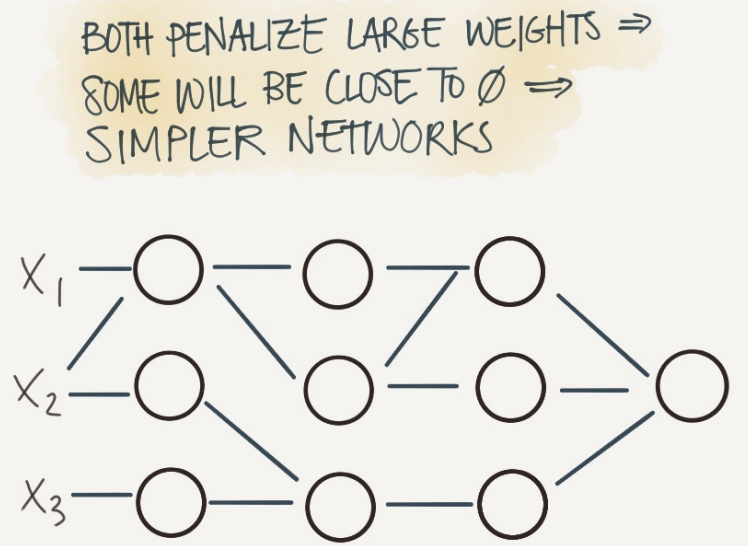 BOTH PENALIZE LARGE WEIGHTS ⇒
SOME WILL BE CLOSE TO Ø ⇒
SIMPLER NETWORKS
X₁
X₂
X₃